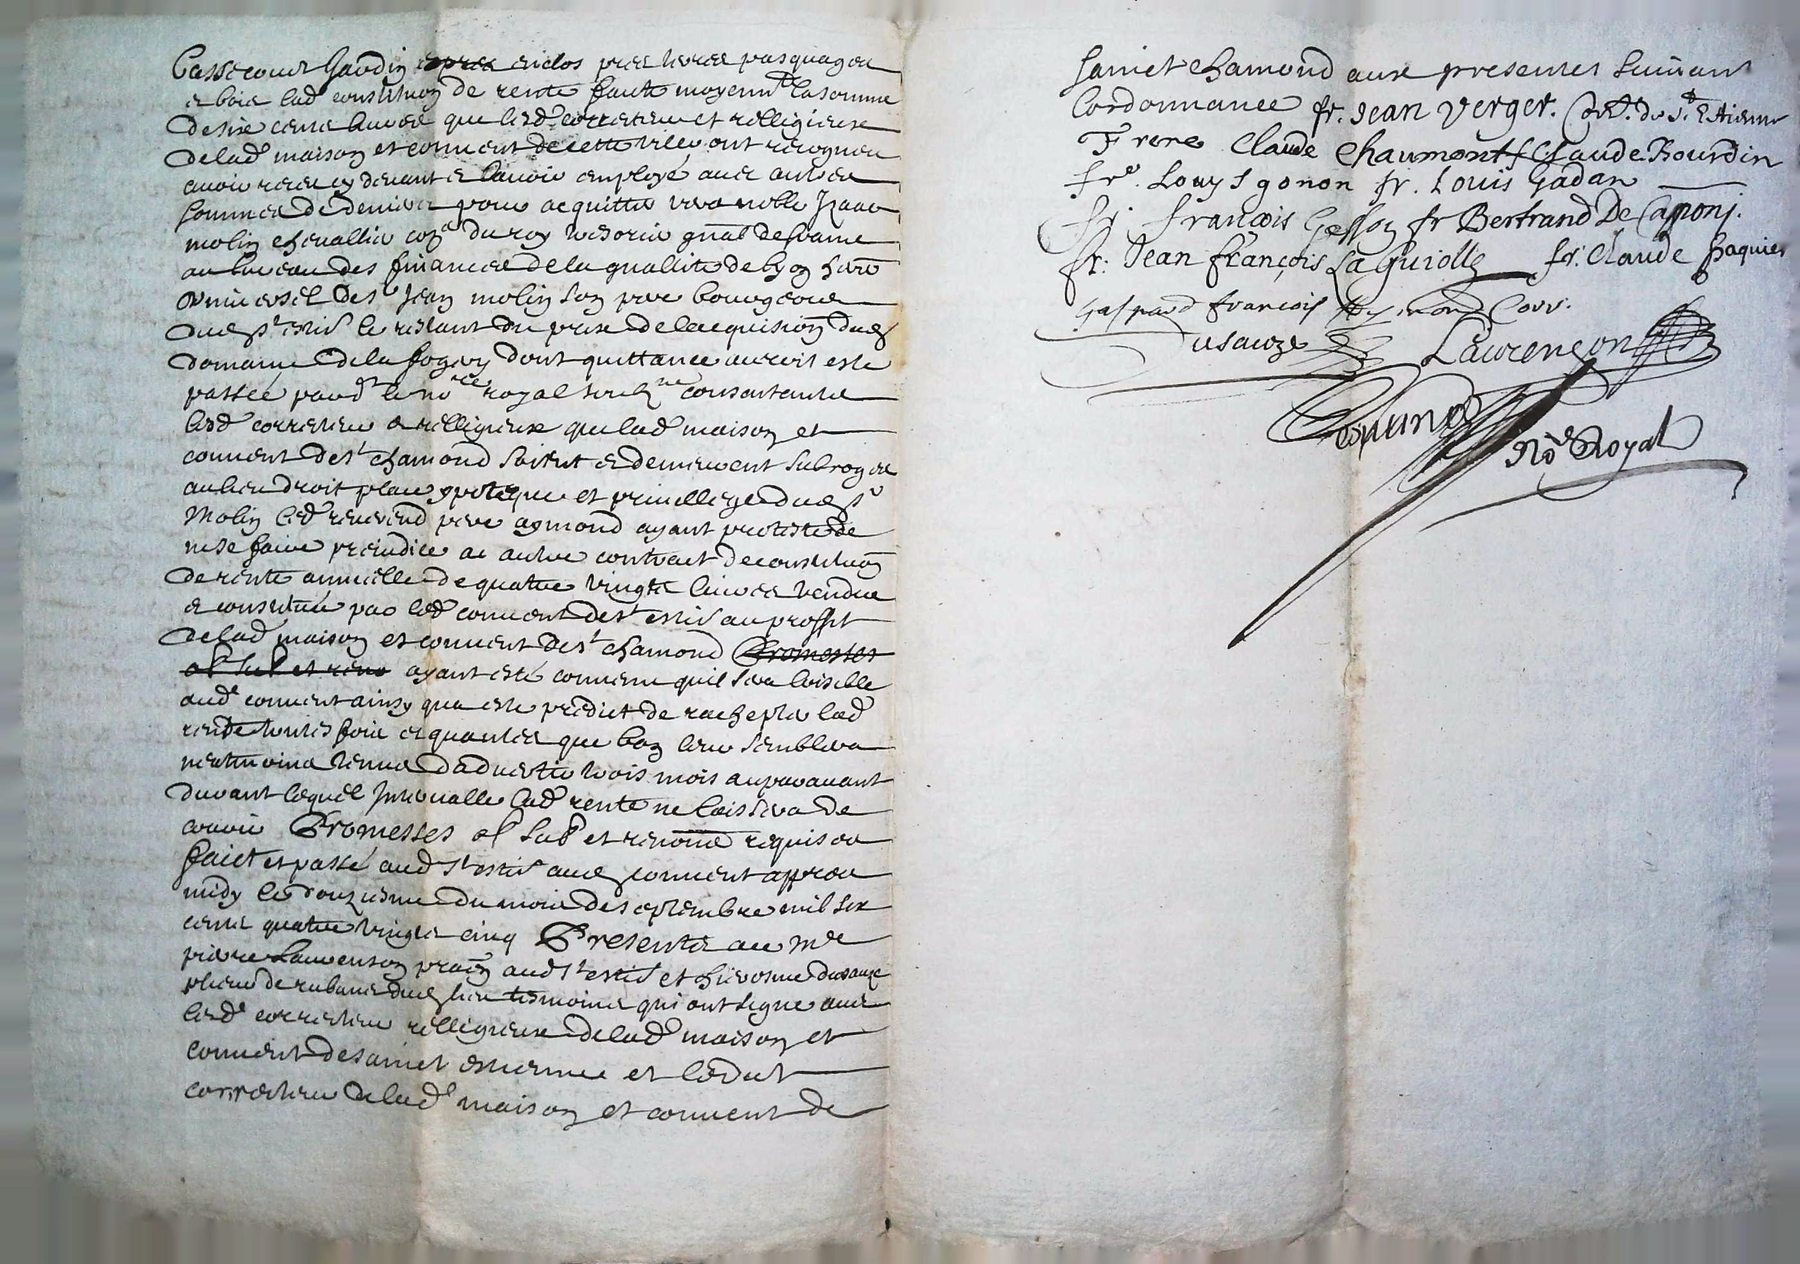 Bassecour Jardin enclos prez terres pasquages
et bois lad constitution de rente faicte moyennt la somme
de six cens livres que lesd correcteur et relligieux
de lad maison et couvent de cette ville ont recogneu
avoir receu cy devant et lavoir employé avec autres
sommes de deniers pour acquitter vers noble Izaac
molin chevallier conser du roy tresorier gnal de france
au bureau des finances de la generallité de lyon
universel de sr Jean molin son pere bourgeois
dud st estie le restant du prix de lacquisition dud
domaine de la dont quittance auroit esté
passée pard le nore royal soubze consentant
lesd correcteur et relligieux que lad maison et
couvent de st chamond soient et demeurent subrogés
au lieu droit place ypoteque et privillege dud sr
Molin led reverend pere aymond ayant protesté de
ne se faire prejudice au autre contract de constitution
de rente annuelle de quatre vingts livres vendue
et constituée par led couvent de st estie au proffit
de lad maison et couvent de st chamond Promesses
ob sub et reno ayant esté convenu quil sera loisible
aud couvent ainsy qua esté predict de rachepter lad
rente toutes fois et quantes que bon leur semblera
neantmoins tenus dadvertir trois mois auparavant
durant lequel Intervalle lad rente ne laissera de
courir Promesses ob sub et renon requises
faict et passé aud st estie aud couvent appres
midy le douziesme du mois de septembre mil six
cens quatre vingts cinq Presents a ce Mre
pierre Laurenson praen aud st estie et hierosme dusauze
plieur de rubans dud lieu tesmoins qui ont signé avec
lesd correcteur relligieux de lad maison et
couvent de sainct estienne et ledict
correcteur de lad maison et couvent de
sainct chamond aux presentes suivant
lordonnance fr. Jean Verger. Corr. de St. Etienne
Frere Claude Chaumont f Claude Bourdin
fre. Louys gonon fr. Louis Gadan
fr. françois Gesson fr Bertrand De Capponj.
fr. Jean françois Laguiolle fr. Claude paquier
gaspard françois Corr.
dusauze Laurençon
Nore Royal